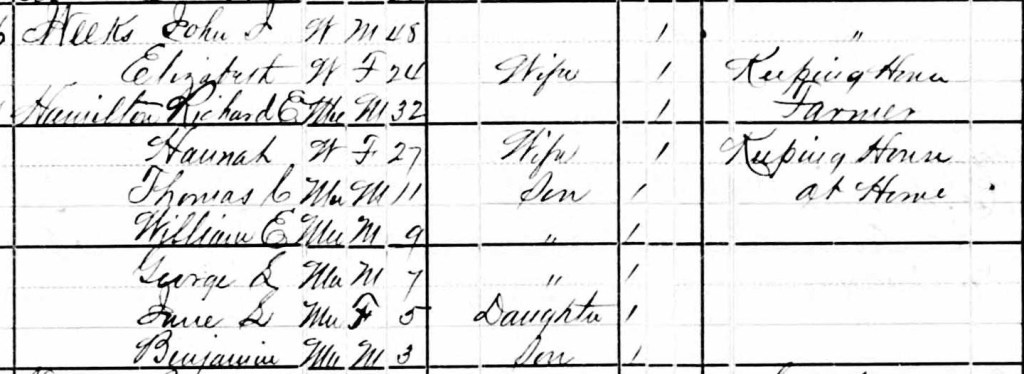 Weeks John J W M 48 1 "
Elizabeth W F 24 Wife 1 Keeping House
Hamilton Richard E Mu M 32 1 Farmer
Hannah W F 27 Wife 1 Keeping House
Thomas C Mu M 11 Son 1 at Home
William E Mu M 9 " 1
George L Mu M 7 " 1
Jane L Mu F 5 Daughter 1
Benjamin Mu M 3 Son 1